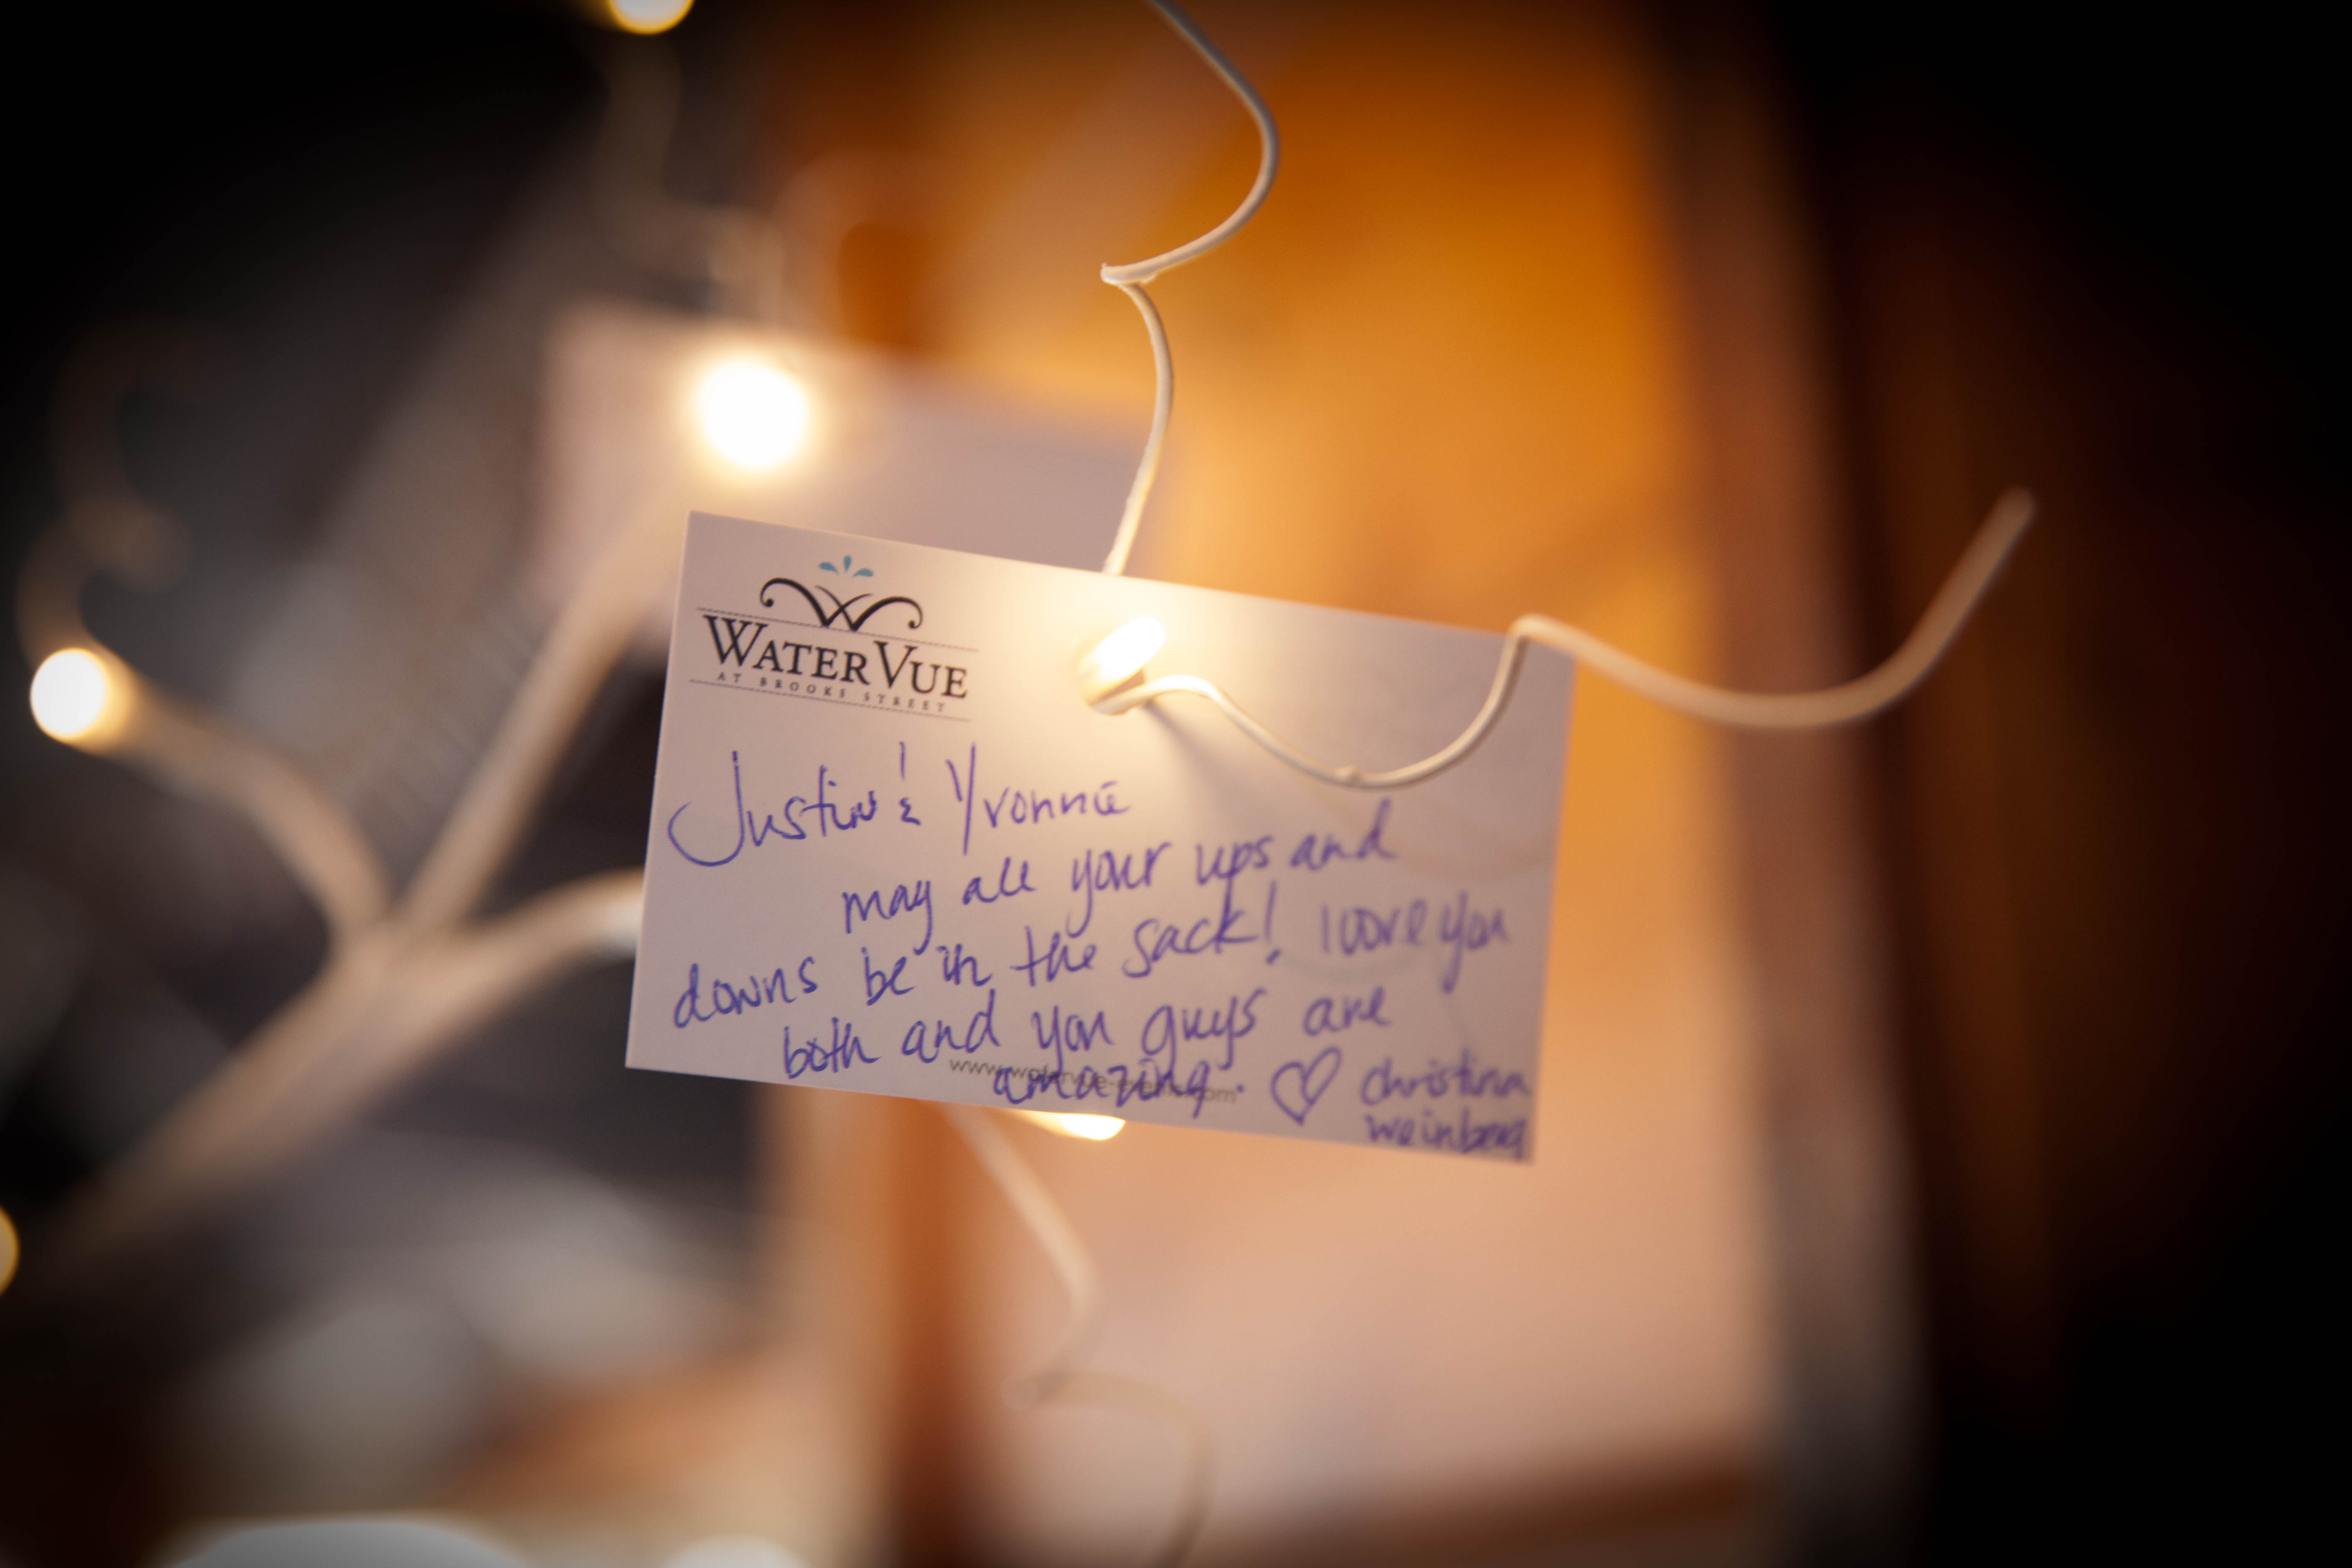 WATERVUE
AT BROOKS STREET
Justin & Yvonne
may all your ups and
downs be in the sack! I love you
both and you guys are
amazing. ♡ christina
weinberg
www.watervue-events.com